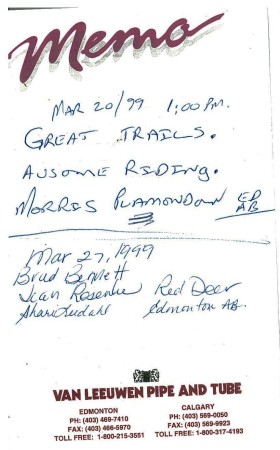 Memo
MAR 20/99 1:00 PM.
GREAT TRAILS.
AUSOME RIDING.
MORRIS PLAMONDON ED AB
Mar 27, 1999
Brad Bennett
Jean Red Deer
Shari Edmonton AB.
VAN LEEUWEN PIPE AND TUBE
EDMONTON CALGARY
PH: (403) 469-7410 PH: (403) 569-0050
FAX: (403) 466-5970 FAX: (403) 569-9923
TOLL FREE: 1-800-215-3551 TOLL FREE: 1-800-317-4193